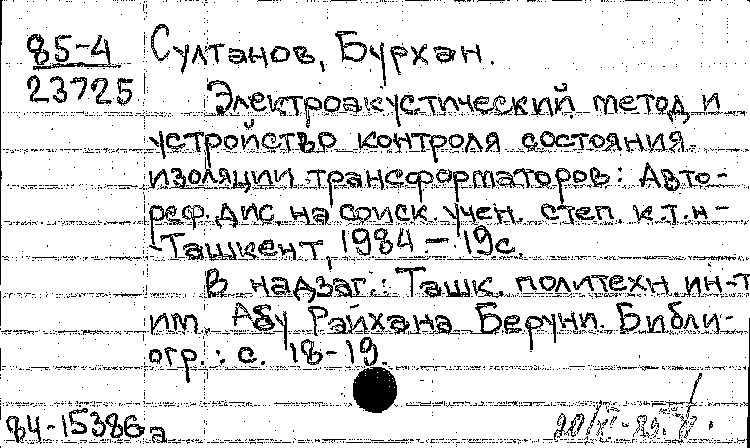 85-4
23725
Султанов, Бурхан.
Электроакустический метод и
устройство контроля состояния
изоляции трансформаторов: Авто-
реф. дис. на соиск. учен. степ. к.т.н -
-Ташкент, 1984 - 19с.
В надзаг.: Ташк. политехн ин-т
им. Абу Райхана Беруни. Библи-
огр.: с. 18-19.
84-15386а